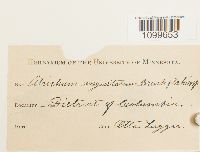 1099653
HERBARIUM OF THE UNIVERSITY OF MINNESOTA.
No. Atrichum angustatum Bruch & Schimp
Locality District of Columbia.
Otto Lugger.